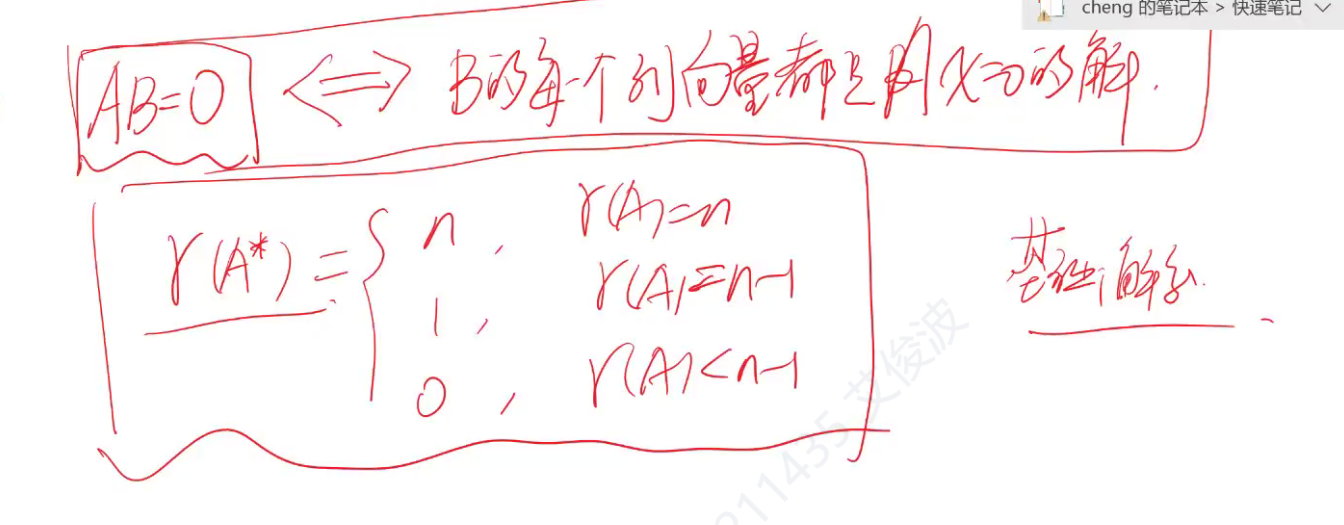 cheng 的笔记本 > 快速笔记
AB=0 <=> B的每一个列向量都是AX=0的解.
r(A*)= { n, r(A)=n
1, r(A)=n-1
0, r(A)<n-1
基础解系.
211435 艾俊波